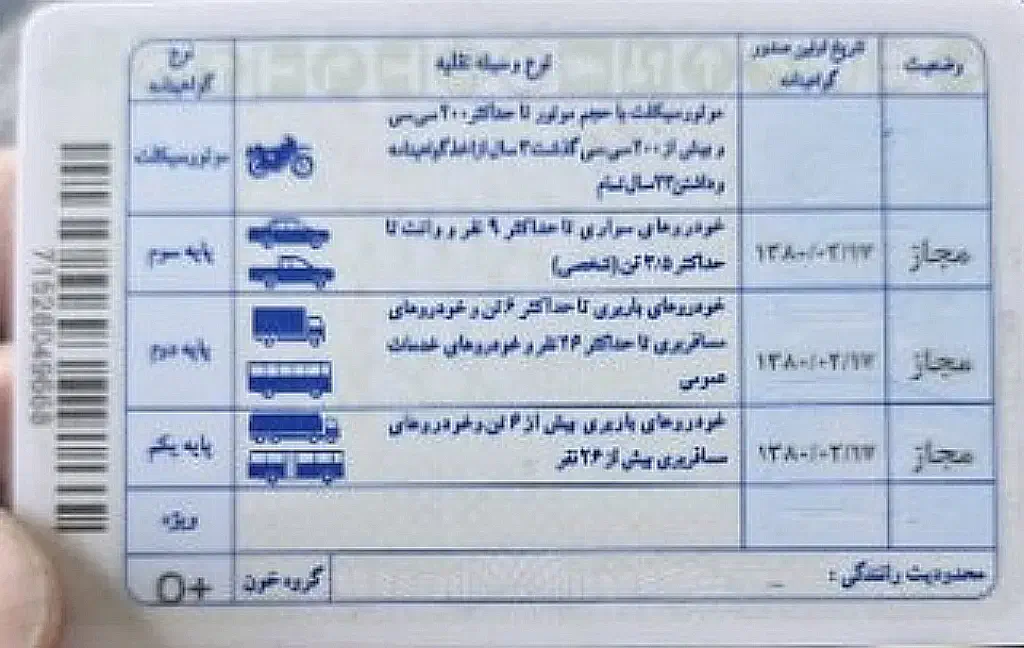 وضعیت
تاریخ اولین صدور
گواهینامه
نوع وسیله نقلیه
نوع
گواهینامه
موتورسیکلت با حجم موتور تا حداکثر ۲۰۰ سی‌سی
و بیش از ۲۰۰ سی‌سی گذشت ۲ سال از اخذ گواهینامه
و داشتن ۲۳ سال تمام
موتورسیکلت
مجاز
خودروهای سواری تا حداکثر ۹ نفر و وانت تا
حداکثر ۳/۵ تن (شخصی)
پایه سوم
مجاز
خودروهای باربری تا حداکثر ۶ تن و خودروهای
مسافربری تا حداکثر ۲۶ نفر و خودروهای خدمات
عمومی
پایه دوم
مجاز
خودروهای باربری بیش از ۶ تن و خودروهای
مسافربری بیش از ۲۶ نفر
پایه یکم
ویژه
محدودیت رانندگی : _
گروه خون
O+